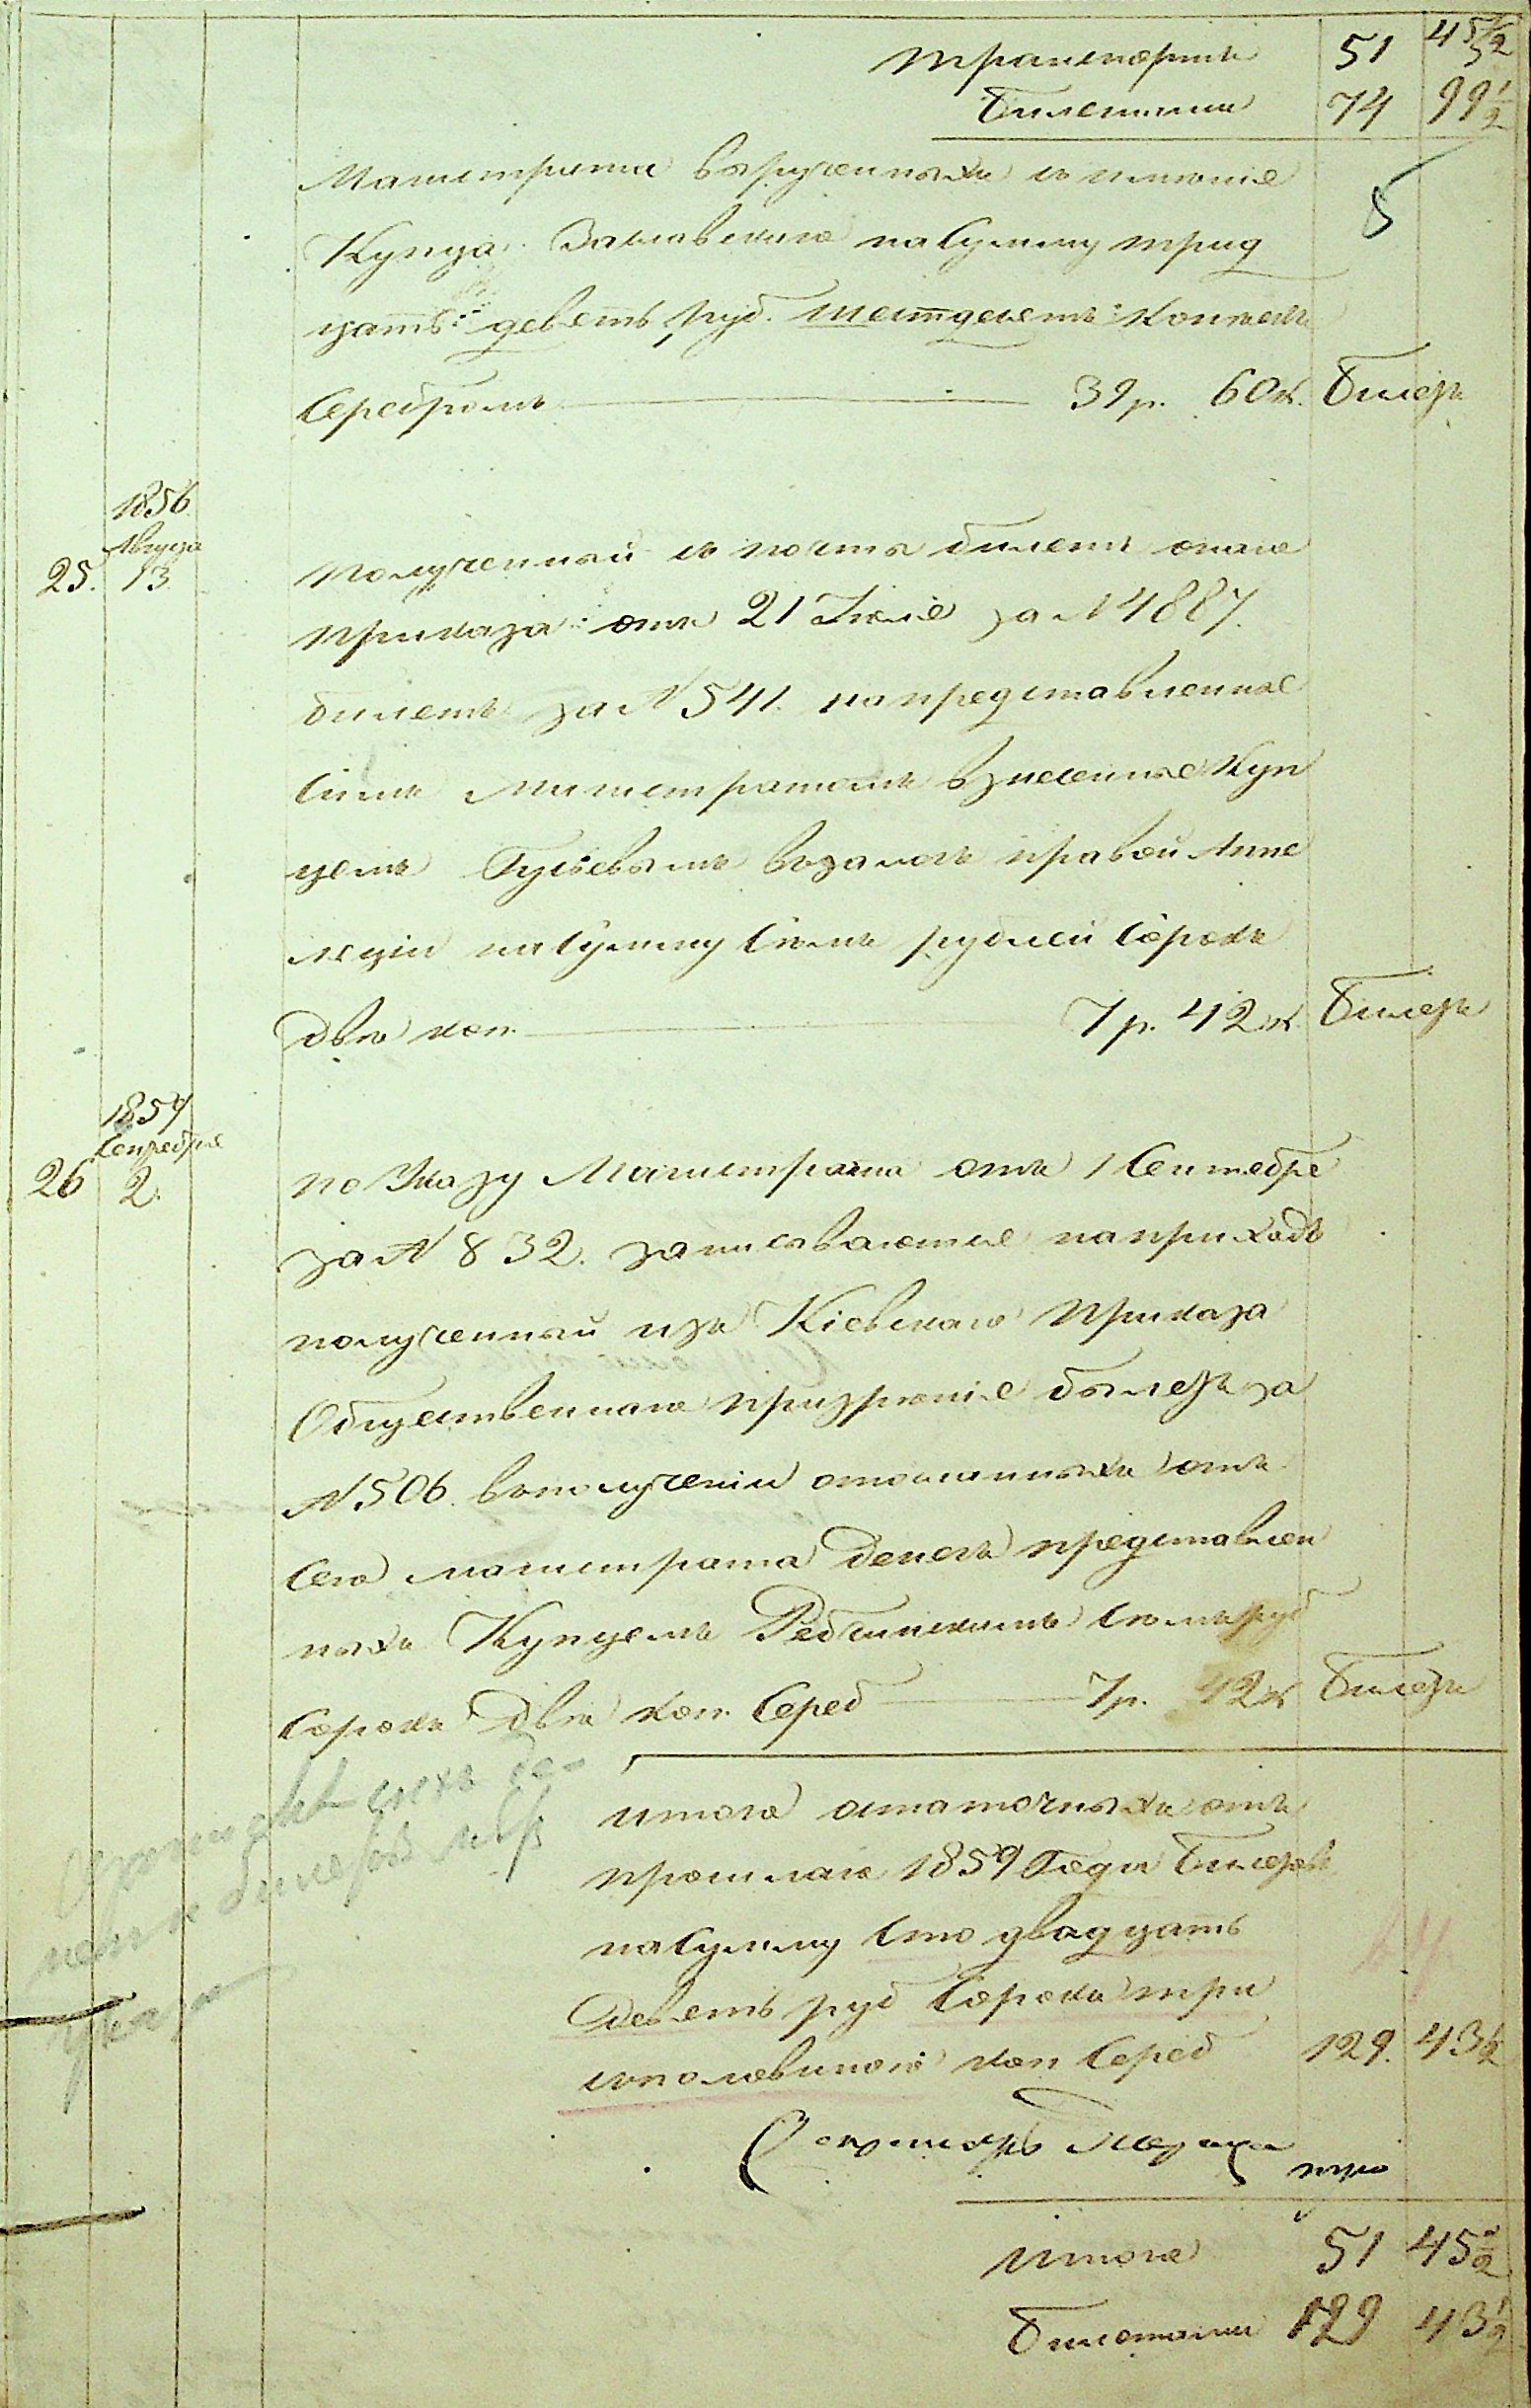 транспортъ 51 45 1/2
билетами 74 99 1/2
Магистрата вырученныхъ съ имѣнія
Купца Заславскаго на сумму трид
цать девять руб. шестдесятъ копѣекъ
Серебромъ 39 р. 60 к. Билетъ
1856
Августа
25. 13. полученный съ почты билетъ онаго
приказа отъ 21 Іюля за N 4887.
билетъ за N 541. на представленные
симъ Магистратомъ взнесенные Куп
цемъ Гуревымъ въ залогъ правой Аппе
ляціи на сумму семь рублей сорокъ
двѣ коп. 7 р. 42 к. Билетъ
1857
Сентебря
26 2. по Указу Магистрата отъ 1 Сентебря
за N 832. записывается на приходъ
полученный изъ Кіевскаго Приказа
Общественнаго призрѣнія билетъ за
N 506. въ полученіи отосланныхъ отъ
сего магистрата денегъ представлен
ныхъ Купцемъ Рабчинскимъ семь руб
сорокъ двѣ коп. Сереб 7 р. 42 к Билетъ
итого остаточныхъ отъ
прошлаго 1859 Года Билетовъ
на сумму сто двадцать
девять руб сорокъ три
съ половиною коп Сереб 129. 43 1/2
итого 51 45 1/2
Билетами 129 43 1/2